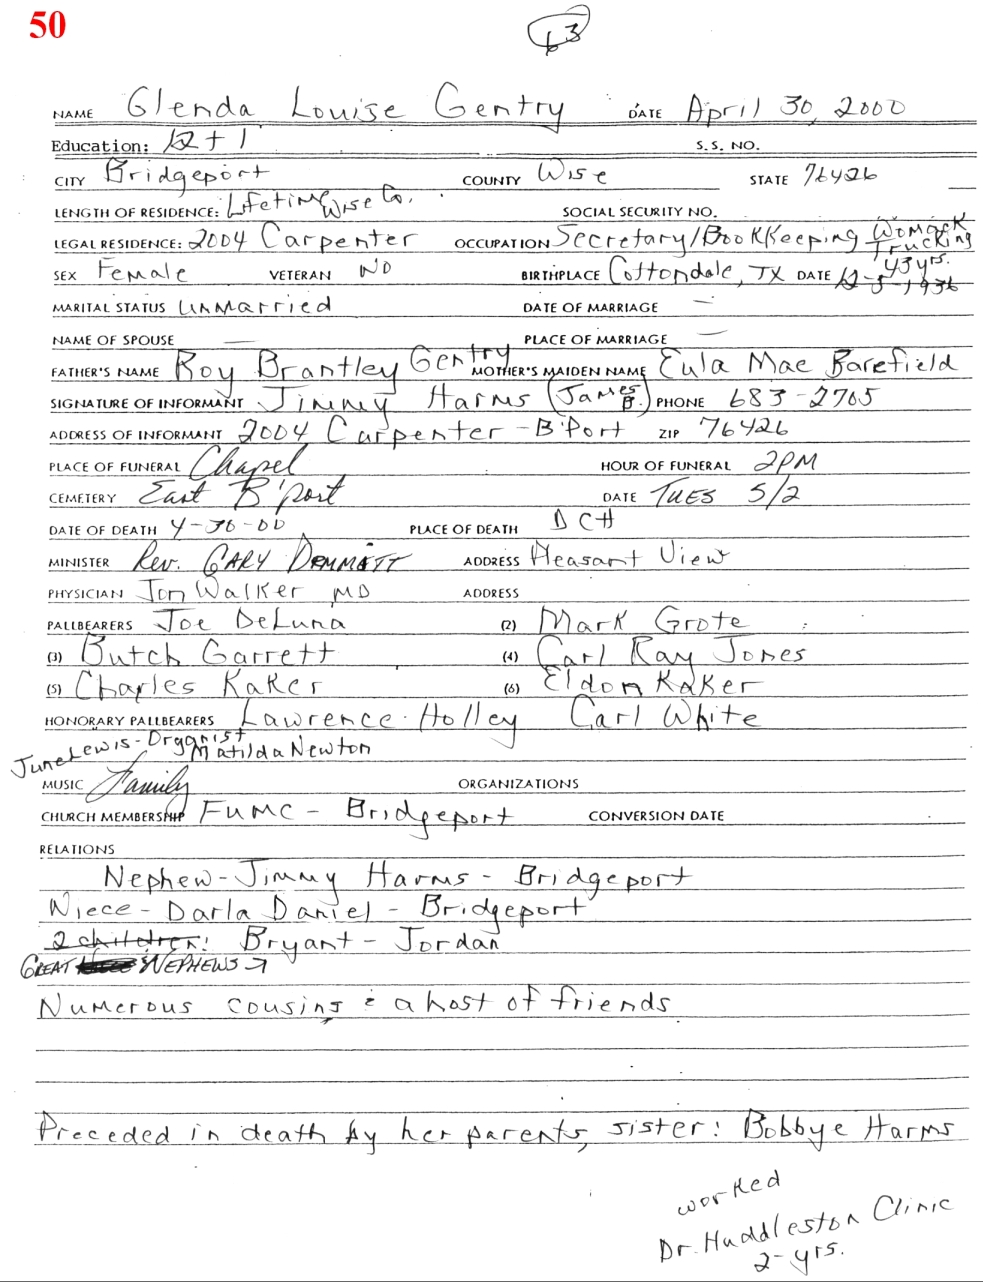 50
63
NAME Glenda Louise Gentry DATE April 30, 2000
Education: 12 + 1 S.S. NO.
CITY Bridgeport COUNTY Wise STATE 76426
LENGTH OF RESIDENCE: Lifetime Wise Co. SOCIAL SECURITY NO.
LEGAL RESIDENCE: 2004 Carpenter OCCUPATION Secretary/BookKeeping Womack Trucking 43 yrs.
SEX Female VETERAN NO BIRTHPLACE Cottondale, TX DATE 12-5-1936
MARITAL STATUS unmarried DATE OF MARRIAGE —
NAME OF SPOUSE — PLACE OF MARRIAGE —
FATHER'S NAME Roy Brantley Gentry MOTHER'S MAIDEN NAME Eula Mae Barefield
SIGNATURE OF INFORMANT Jimmy Harms (James B.) PHONE 683-2765
ADDRESS OF INFORMANT 2004 Carpenter - B'Port ZIP 76426
PLACE OF FUNERAL Chapel HOUR OF FUNERAL 2PM
CEMETERY East B'port DATE TUES 5/2
DATE OF DEATH 4-30-00 PLACE OF DEATH DCH
MINISTER Rev. GARY ADDRESS Pleasant View
PHYSICIAN Jon Walker MD ADDRESS
PALLBEARERS Joe DeLuna (2) Mark Grote
(3) Butch Garrett (4) Carl Ray Jones
(5) Charles Kaker (6) Eldon Kaker
HONORARY PALLBEARERS Lawrence Holley Carl White
June Lewis - Organist Matilda Newton
MUSIC Family ORGANIZATIONS
CHURCH MEMBERSHIP FUMC - Bridgeport CONVERSION DATE
RELATIONS
Nephew - Jimmy Harms - Bridgeport
Niece - Darla Daniel - Bridgeport
2 children: Bryant - Jordan
GREAT NEPHEWS
Numerous cousins & a host of friends
Preceded in death by her parents, sister: Bobbye Harms
worked
Dr. Huddleston Clinic
2-yrs.